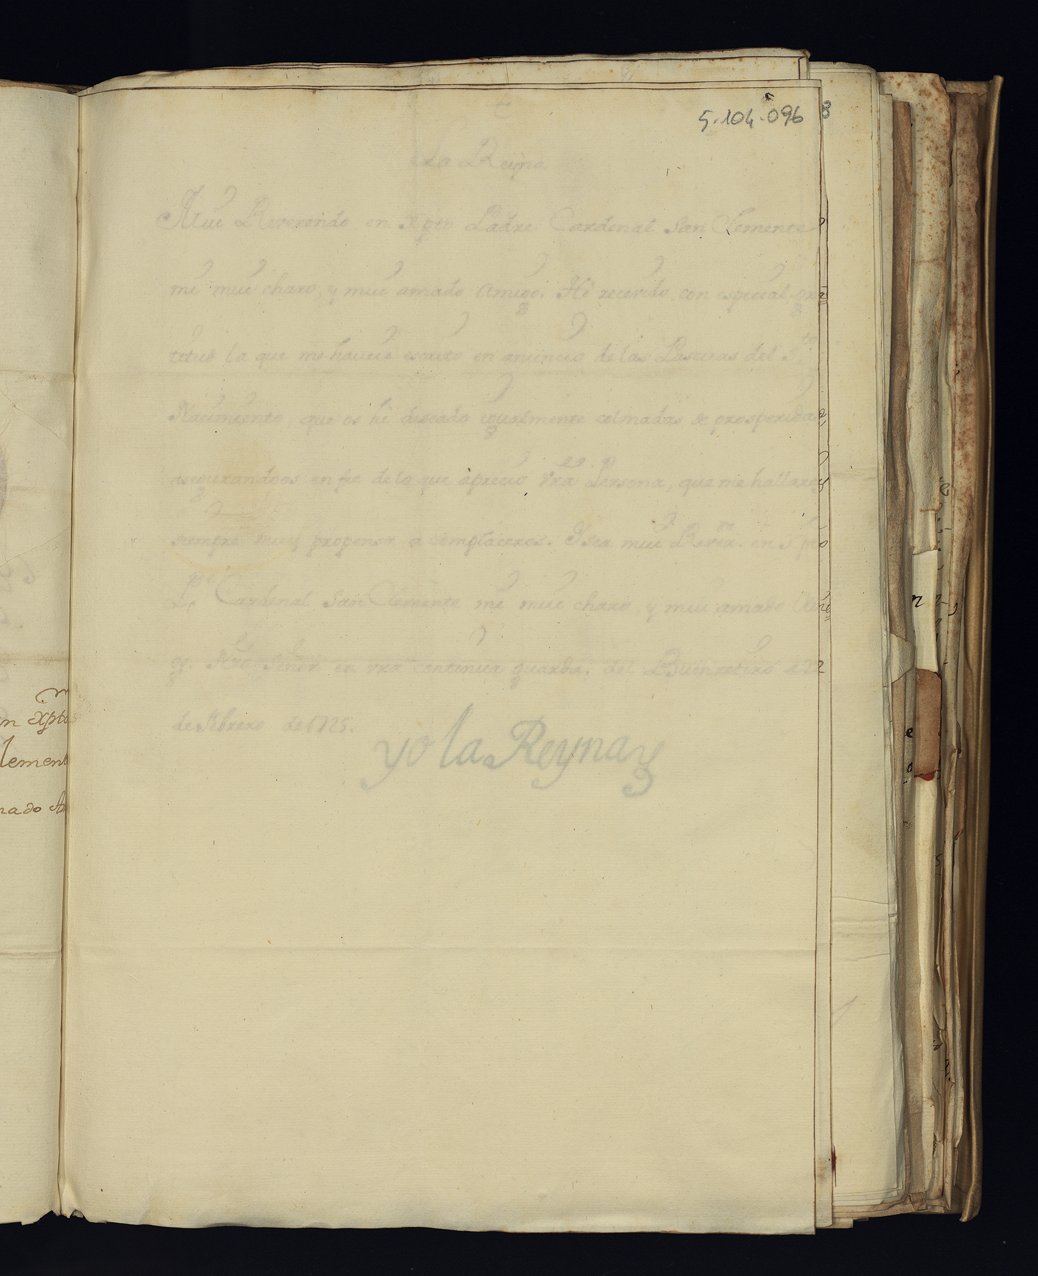 5.104.096
La Reyna
Mui Reverendo en Xpto Padre Cardenal San Clemente
mi mui charo, y mui amado Amigo. Hé recevido con especial
titud la que me haveis escrito en anuncio de las Pascuas del S.to
Nacimiento, que os hé deseado igualmente colmadas de prosperida
asegurandoos en fee de lo que aprecio vra Persona, que me hallareis
siempre muy propensa a complaceros. Y sea mui Rever. en Xpto
P.e Cardenal San Clemente mi mui charo, y mui amado
Nro Señor en vra continua guarda. del Buen retiro a 22
de Febrero de 1725.
yo la Reyna
n Xpto
lement
nado A